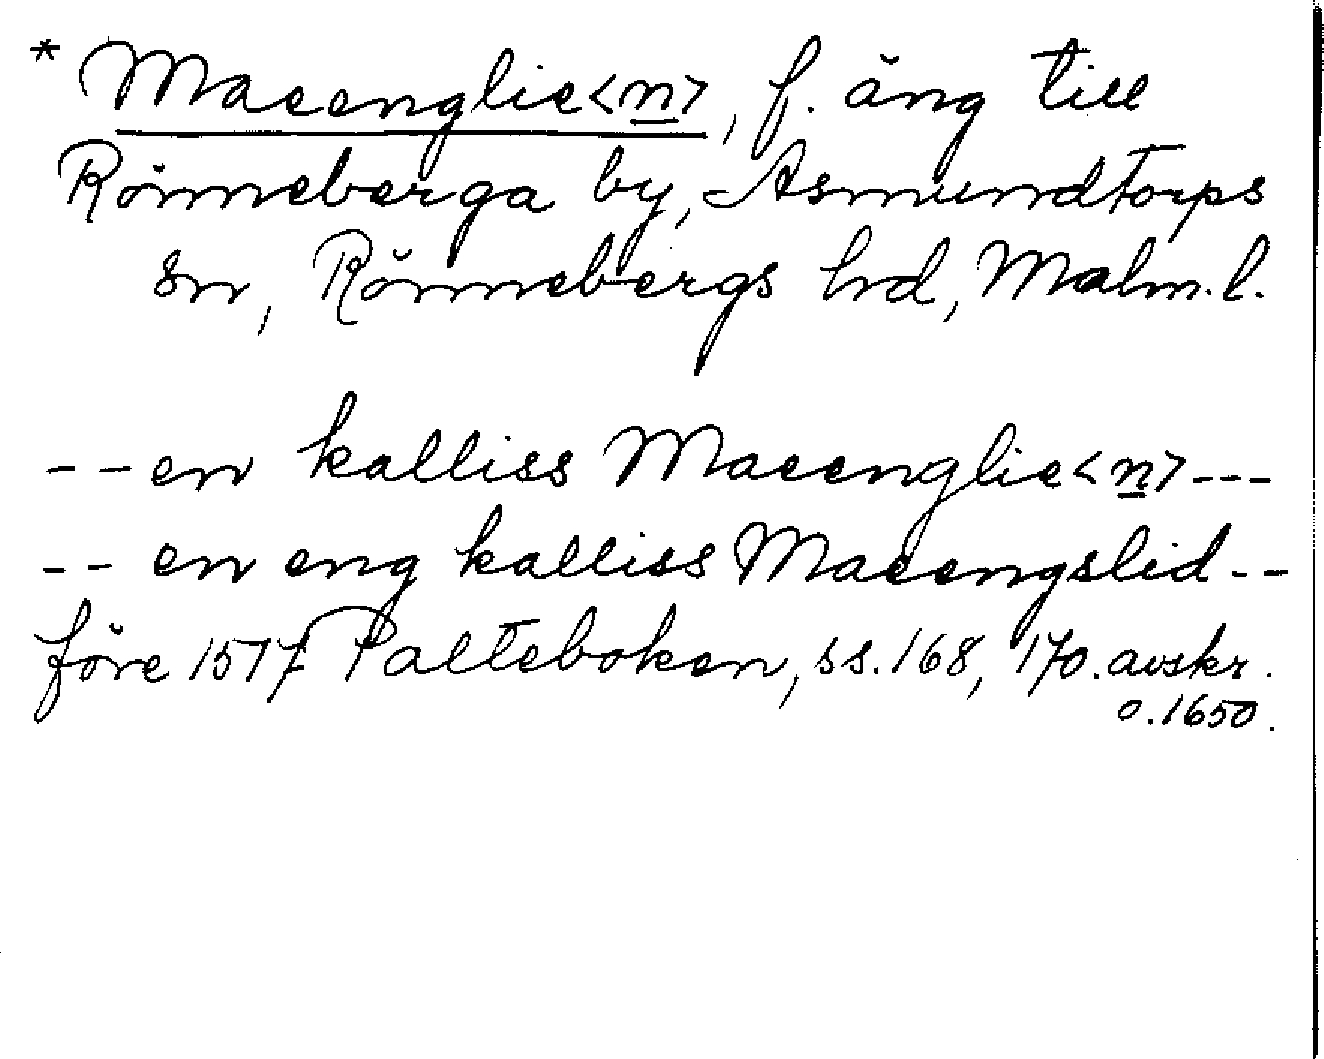 * Maeenglie<n>, f. äng till
Rönneberga by, Asmundtorps
sn, Rönnebergs hd, Malm. l.
-- en kalliss Maeenglie<n> ---
-- en eng kalliss Maeengslid --
före 1517 Palteboken, ss. 168, 170. avskr.
o. 1650.